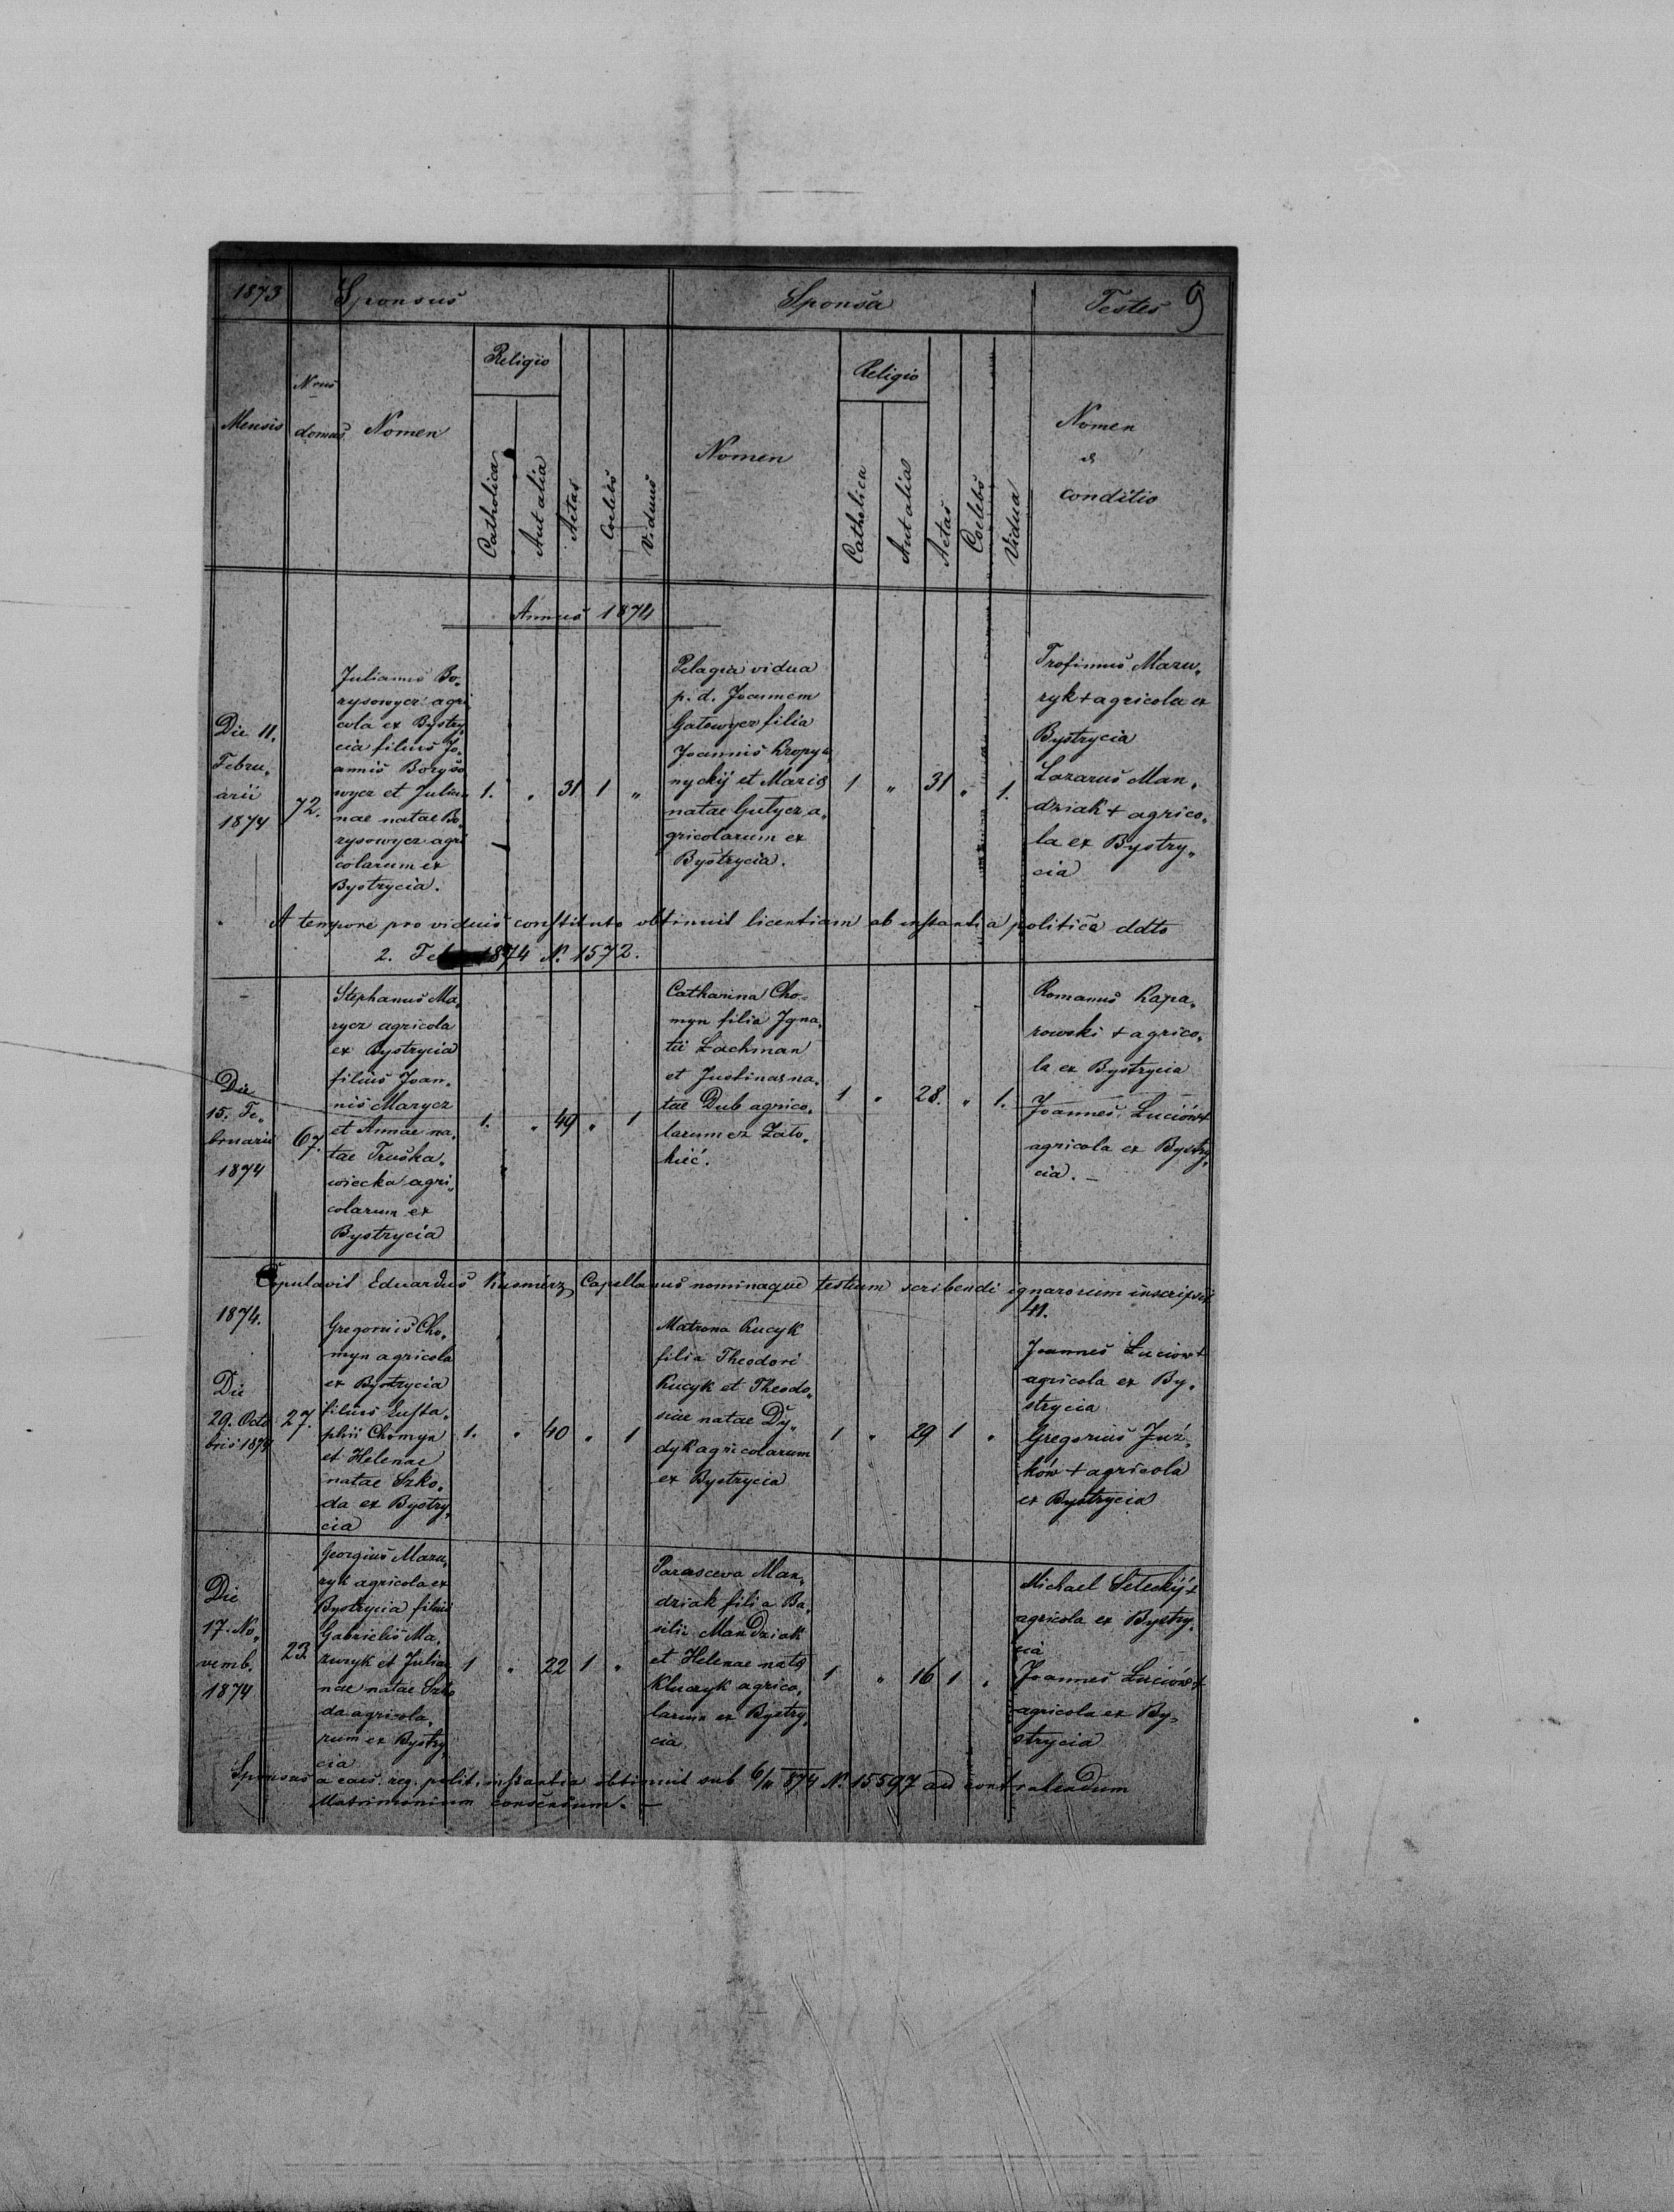 1873 Sponsus Sponsa Testes 9
Mensis
Nrus
domus
Nomen
Religio
Catholica
Aut alia
Aetas
Coelebs
Viduus
Nomen
Religio
Catholica
Aut alia
Aetas
Coelebs
Vidua
Nomen
&
conditio
Annus 1874
Die 11.
Febru„
arii
1874
72.
Julianus Bo„
rysowycz agri
cola ex Bystry„
cia filius Jo„
annis Boryso
wycz et Julia„
nae natae Bo„
rysowycz agri
colarum ex
Bystrycia.
1. „ 31 1 „
Pelagia vidua
p. d. Joannem
Gatowycz filia
Joannis Kropy„
nyckij et Maria
natae Gutycz a„
gricolarum ex
Bystrycia.
1 „ 31 „ 1.
Trofimus Mazu„
ryk + agricola ex
Bystrycia
Lazarus Man„
dziak + agrico„
la ex Bystry„
cia
A tempore pro viduis constituto obtinuit licentiam ab instantia politica ddto
2. 1874 N. 1572.
Die
15. Fe„
bruarii
1874
67.
Stephanus Ma„
rycz agricola
ex Bystrycia
filius Joan„
nis Marycz
et Annae na„
tae Truska„
wiecka agri„
colarum ex
Bystrycia
1. „ 49 „ 1
Catharina Cho„
myn filia Jgna„
tii Lachman
et Justinae na„
tae Dub agrico„
larum ex Zało„
kieć.
1 „ 28. „ 1.
Romanus Kapa„
rowski + agrico„
la ex Bystrycia
Joannes Luciów +
agricola ex Bystry„
cia. –
Copulavit Eduardus Kusmirz Capellanus nominaque testium scribendi ignarorum inscripsit
1874.
Die
29. Octo
bris 1874
27.
Gregorius Cho„
myn agricola
ex Bystrycia
filius Eusta„
phii Chomyn
et Helenae
natae Szko„
da ex Bystry„
cia
1. „ 40 „ 1
Matrona Kucyk
filia Theodori
Kucyk et Theodo„
siae natae Dy„
dyk agricolarum
ex Bystrycia
1 „ 29 1 „
Joannes Luciow +
agricola ex By„
strycia
Gregorius Juź„
ków + agricola
ex Bystrycia
Die
17. No„
vemb.
1874
23
Georgius Mazu„
ryk agricola ex
Bystrycia filius
Gabrielis Ma„
zuryk et Julia„
nae natae Szko
da agricola„
rum ex Bystry„
cia
1 „ 22 1 „
Parasceva Man„
dziak filia Ba„
silii Mandziak
et Helenae nata
Kluczyk agrico„
larum ex Bystry„
cia
1 „ 16 1 „
Michael Seteckij +
agricola ex Bystry„
cia
Joannes Luciów +
agricola ex By„
strycia
Sponsus a caes. reg. polit. instantia obtinuit sub 6/11 874 N. 15597 ad contrahendum
Matrimonium consensum. –